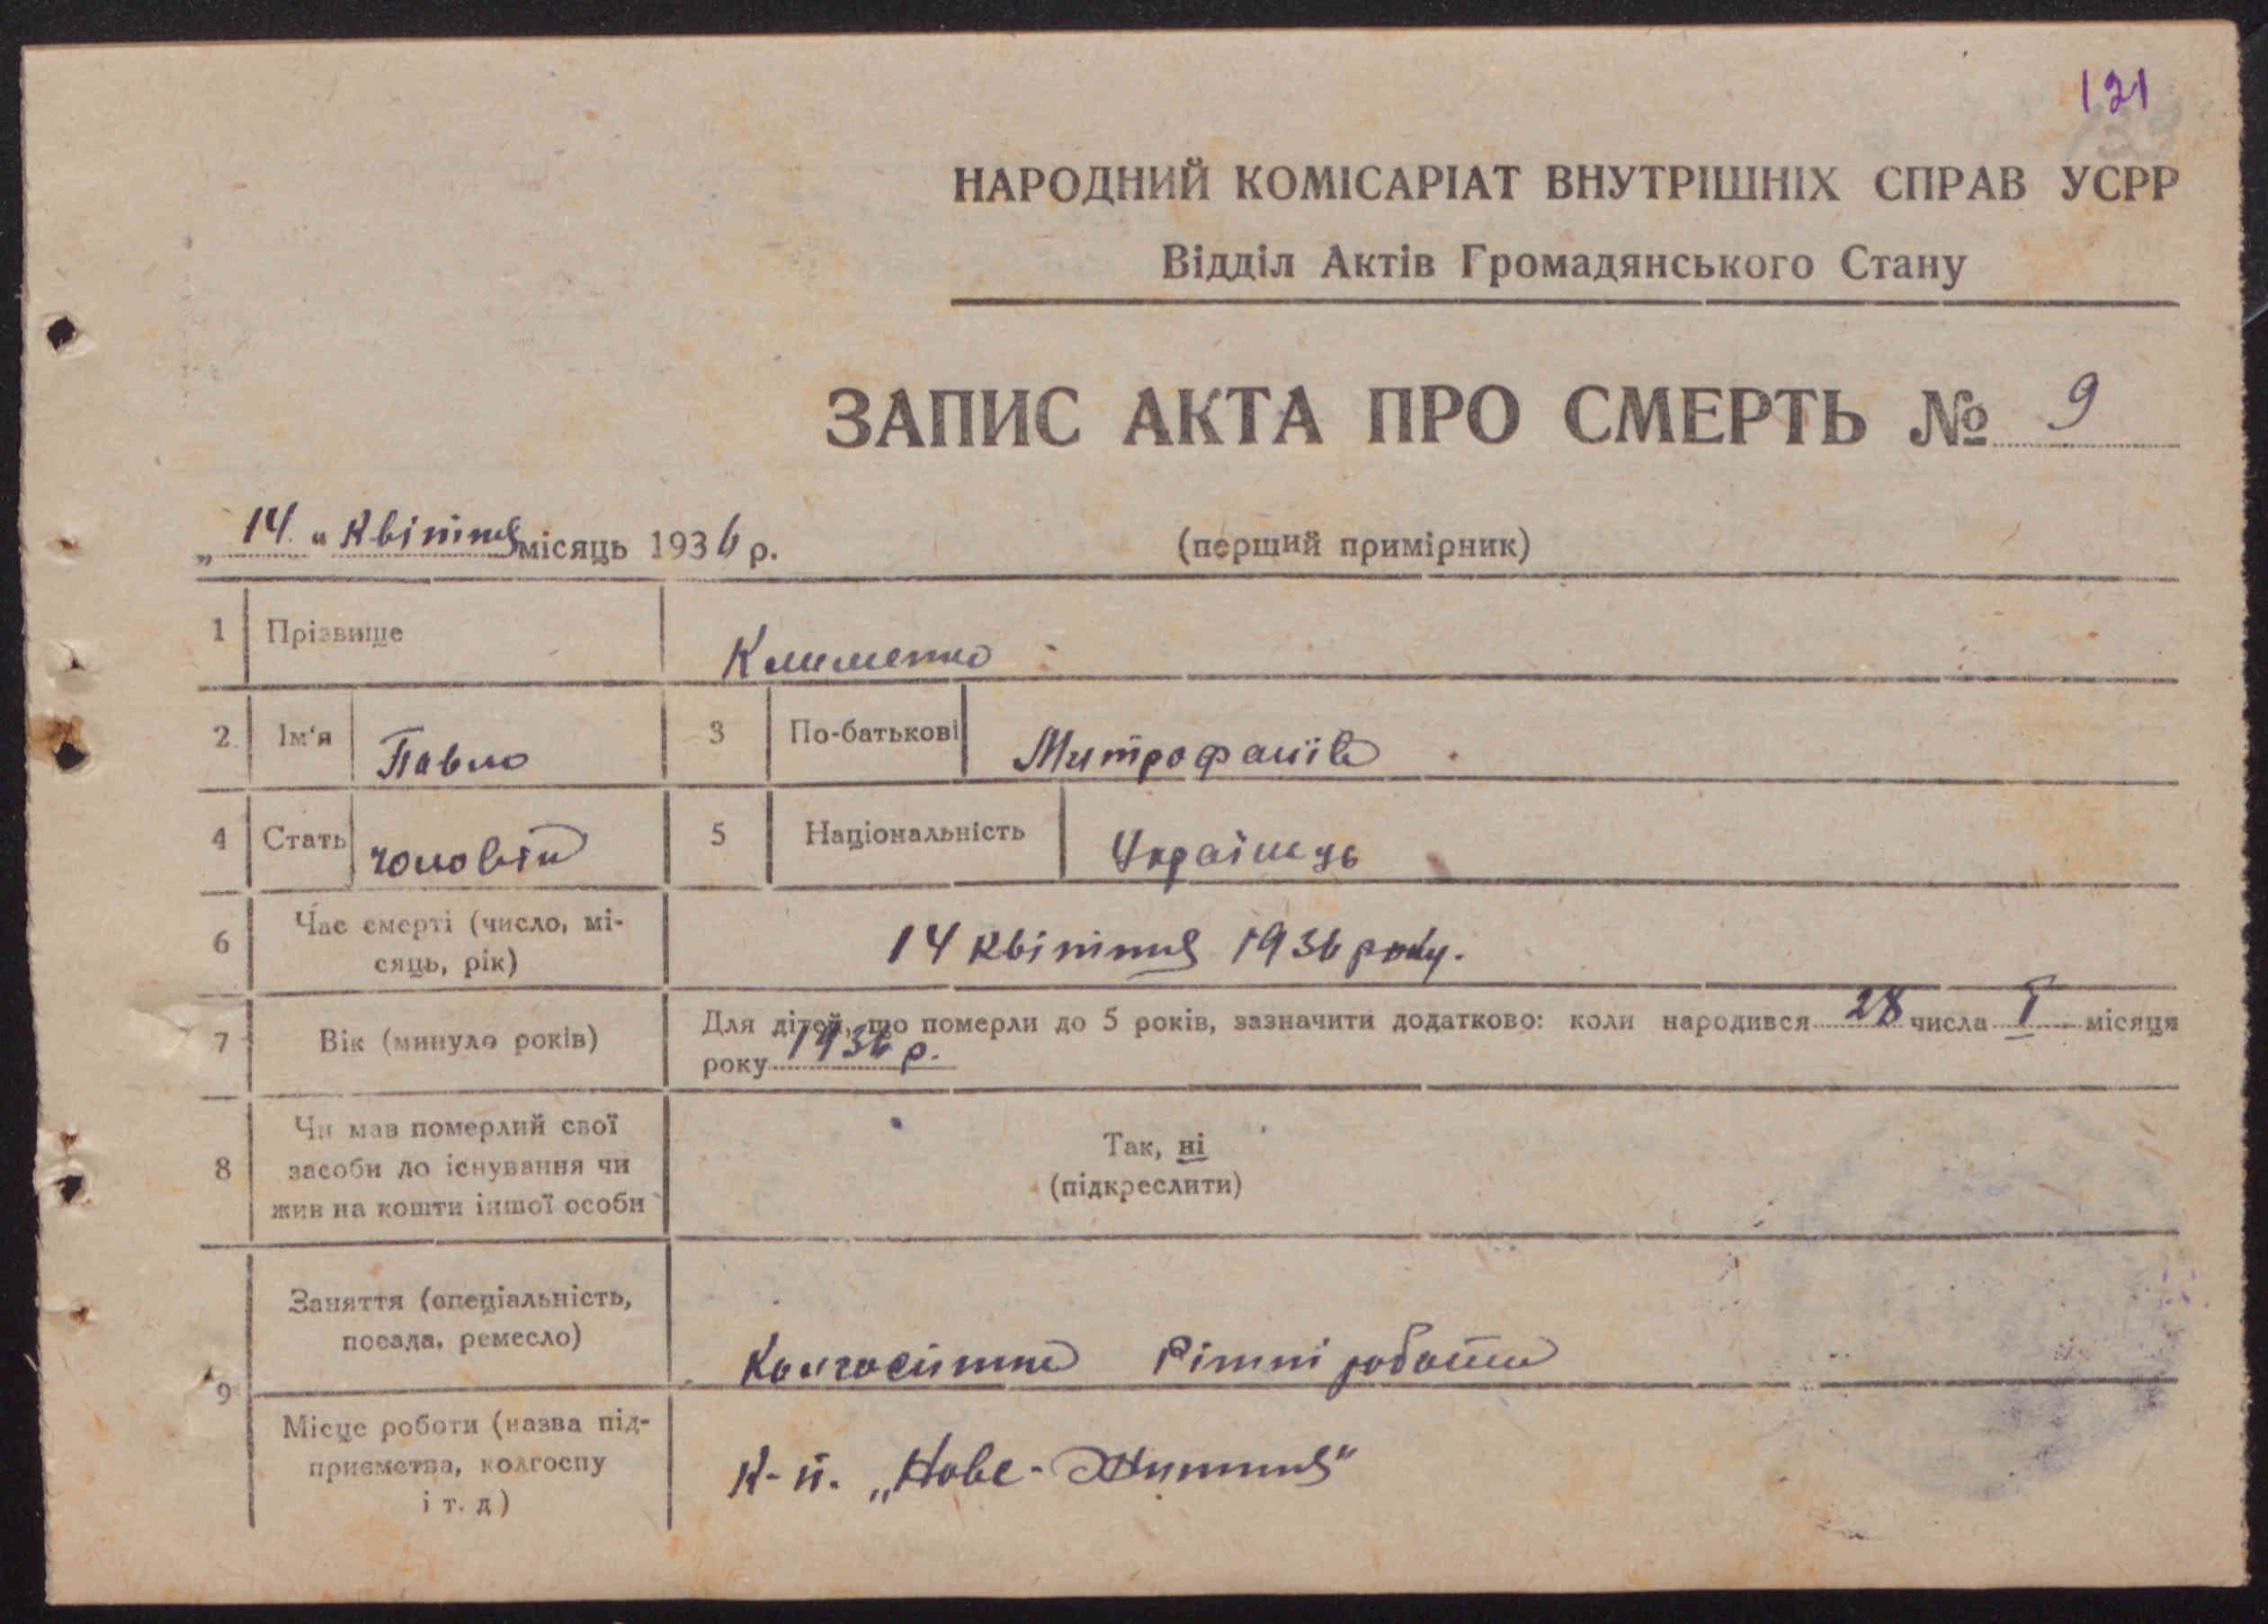 121
НАРОДНИЙ КОМІСАРІАТ ВНУТРІШНІХ СПРАВ УСРР
Відділ Актів Громадянського Стану
ЗАПИС АКТА ПРО СМЕРТЬ № 9
„ 14 " Квітня місяць 1936 р. (перший примірник)
1 Прізвище Клименко
2 Ім'я Павло 3 По-батькові Митрофанів
4 Стать чоловік 5 Національність Українець
6 Час смерті (число, мі-
сяць, рік) 14 квітня 1936 року.
7 Вік (минуло років) Для дітей, що померли до 5 років, зазначити додатково: коли народився 28 числа I місяця
року 1936 р.
8 Чи мав померлий свої
засоби до існування чи
жив на кошти іншої особи
Так, ні
(підкреслити)
9 Заняття (спеціальність,
посада, ремесло) Рітні роботи
Місце роботи (назва під-
приємства, колгоспу
і т. д) К-п. „Нове-Життя"